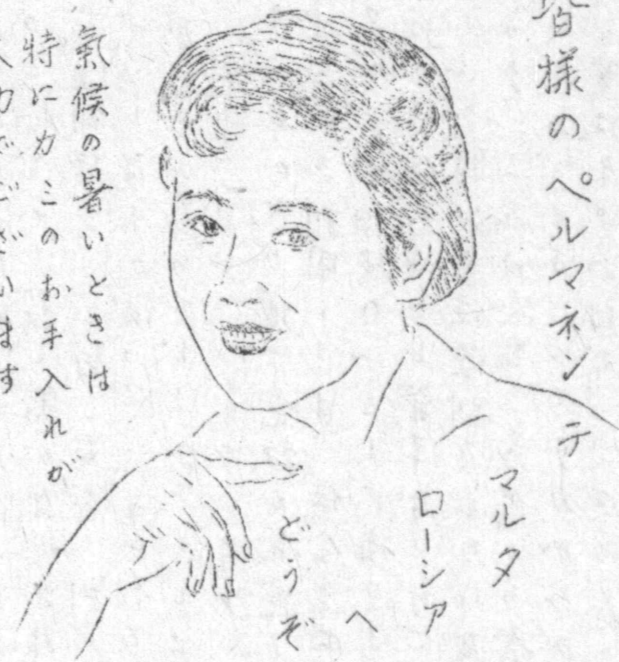 皆様のペルマネンテ
マルタ
ローシア
へ
どうぞ
氣候の暑いときは
特にカミのお手入れが
でございます